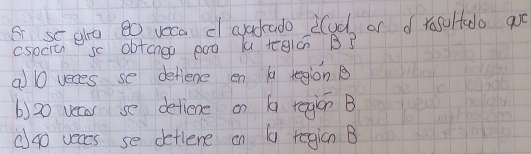 Si se gira 80 veces el cuadrado ¿Cuál es el resultado que
espera se obtenga para la región B?
a) 10 veces se detiene en la región B
b) 20 veces se detiene en la región B
c) 40 veces se detiene en la región B